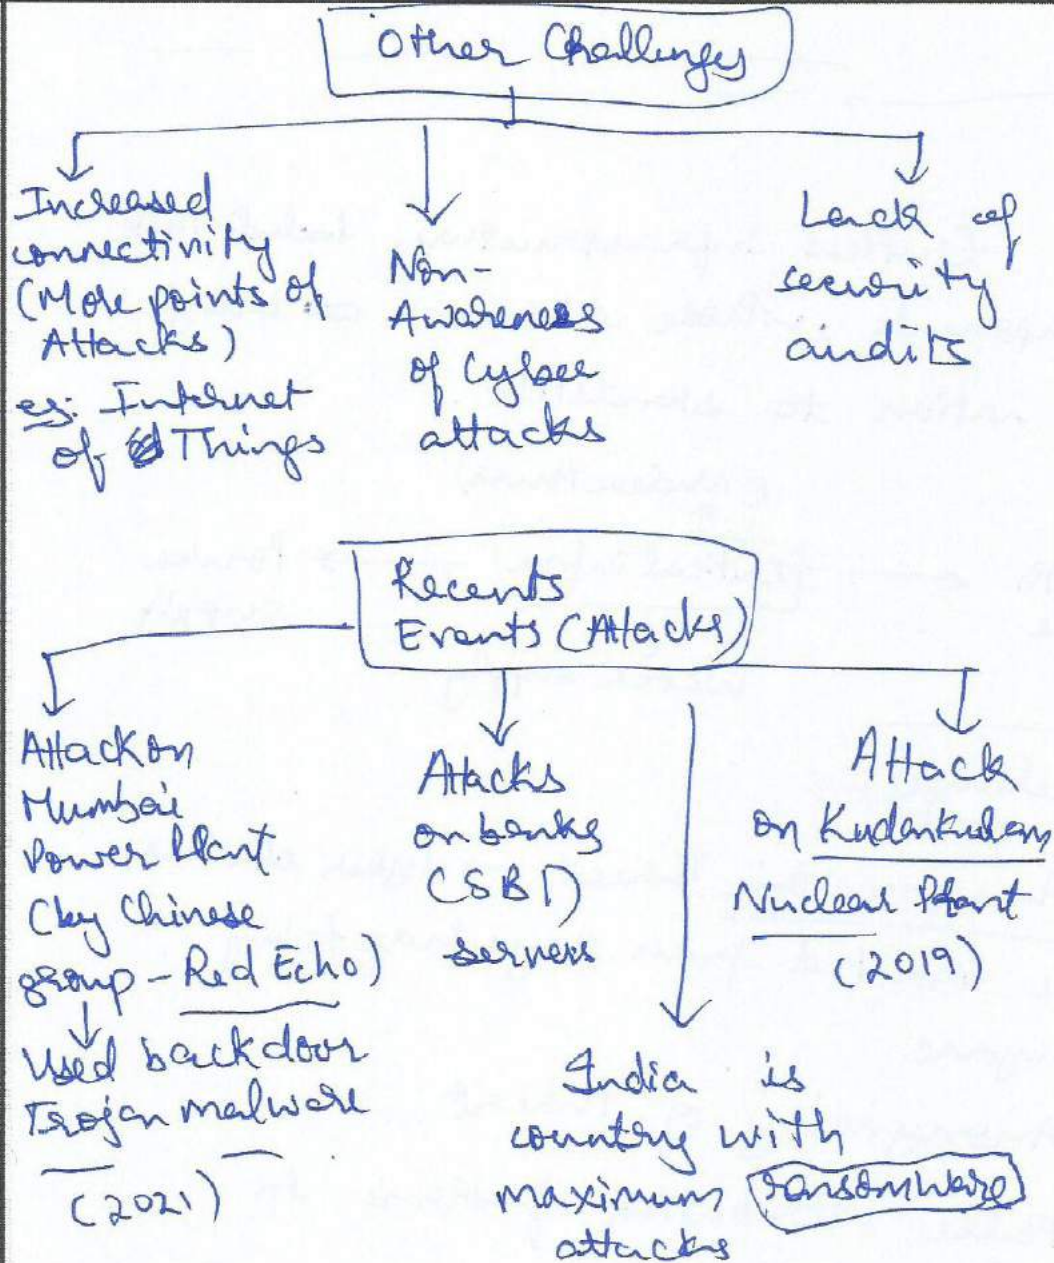 Other Challenges
Increased
connectivity
(More points of
Attacks)
eg: Internet
of Things
Non-
Awareness
of Cyber
attacks
Lack of
security
audits
Recents
Events (Attacks)
Attack on
Mumbai
Power Plant
(by Chinese
group - Red Echo)
Used backdoor
Trojan malware
(2021)
Attacks
on banks
(SBI)
servers
India is
country with
maximum ransomware
attacks
Attack
on Kudankulam
Nuclear Plant
(2019)